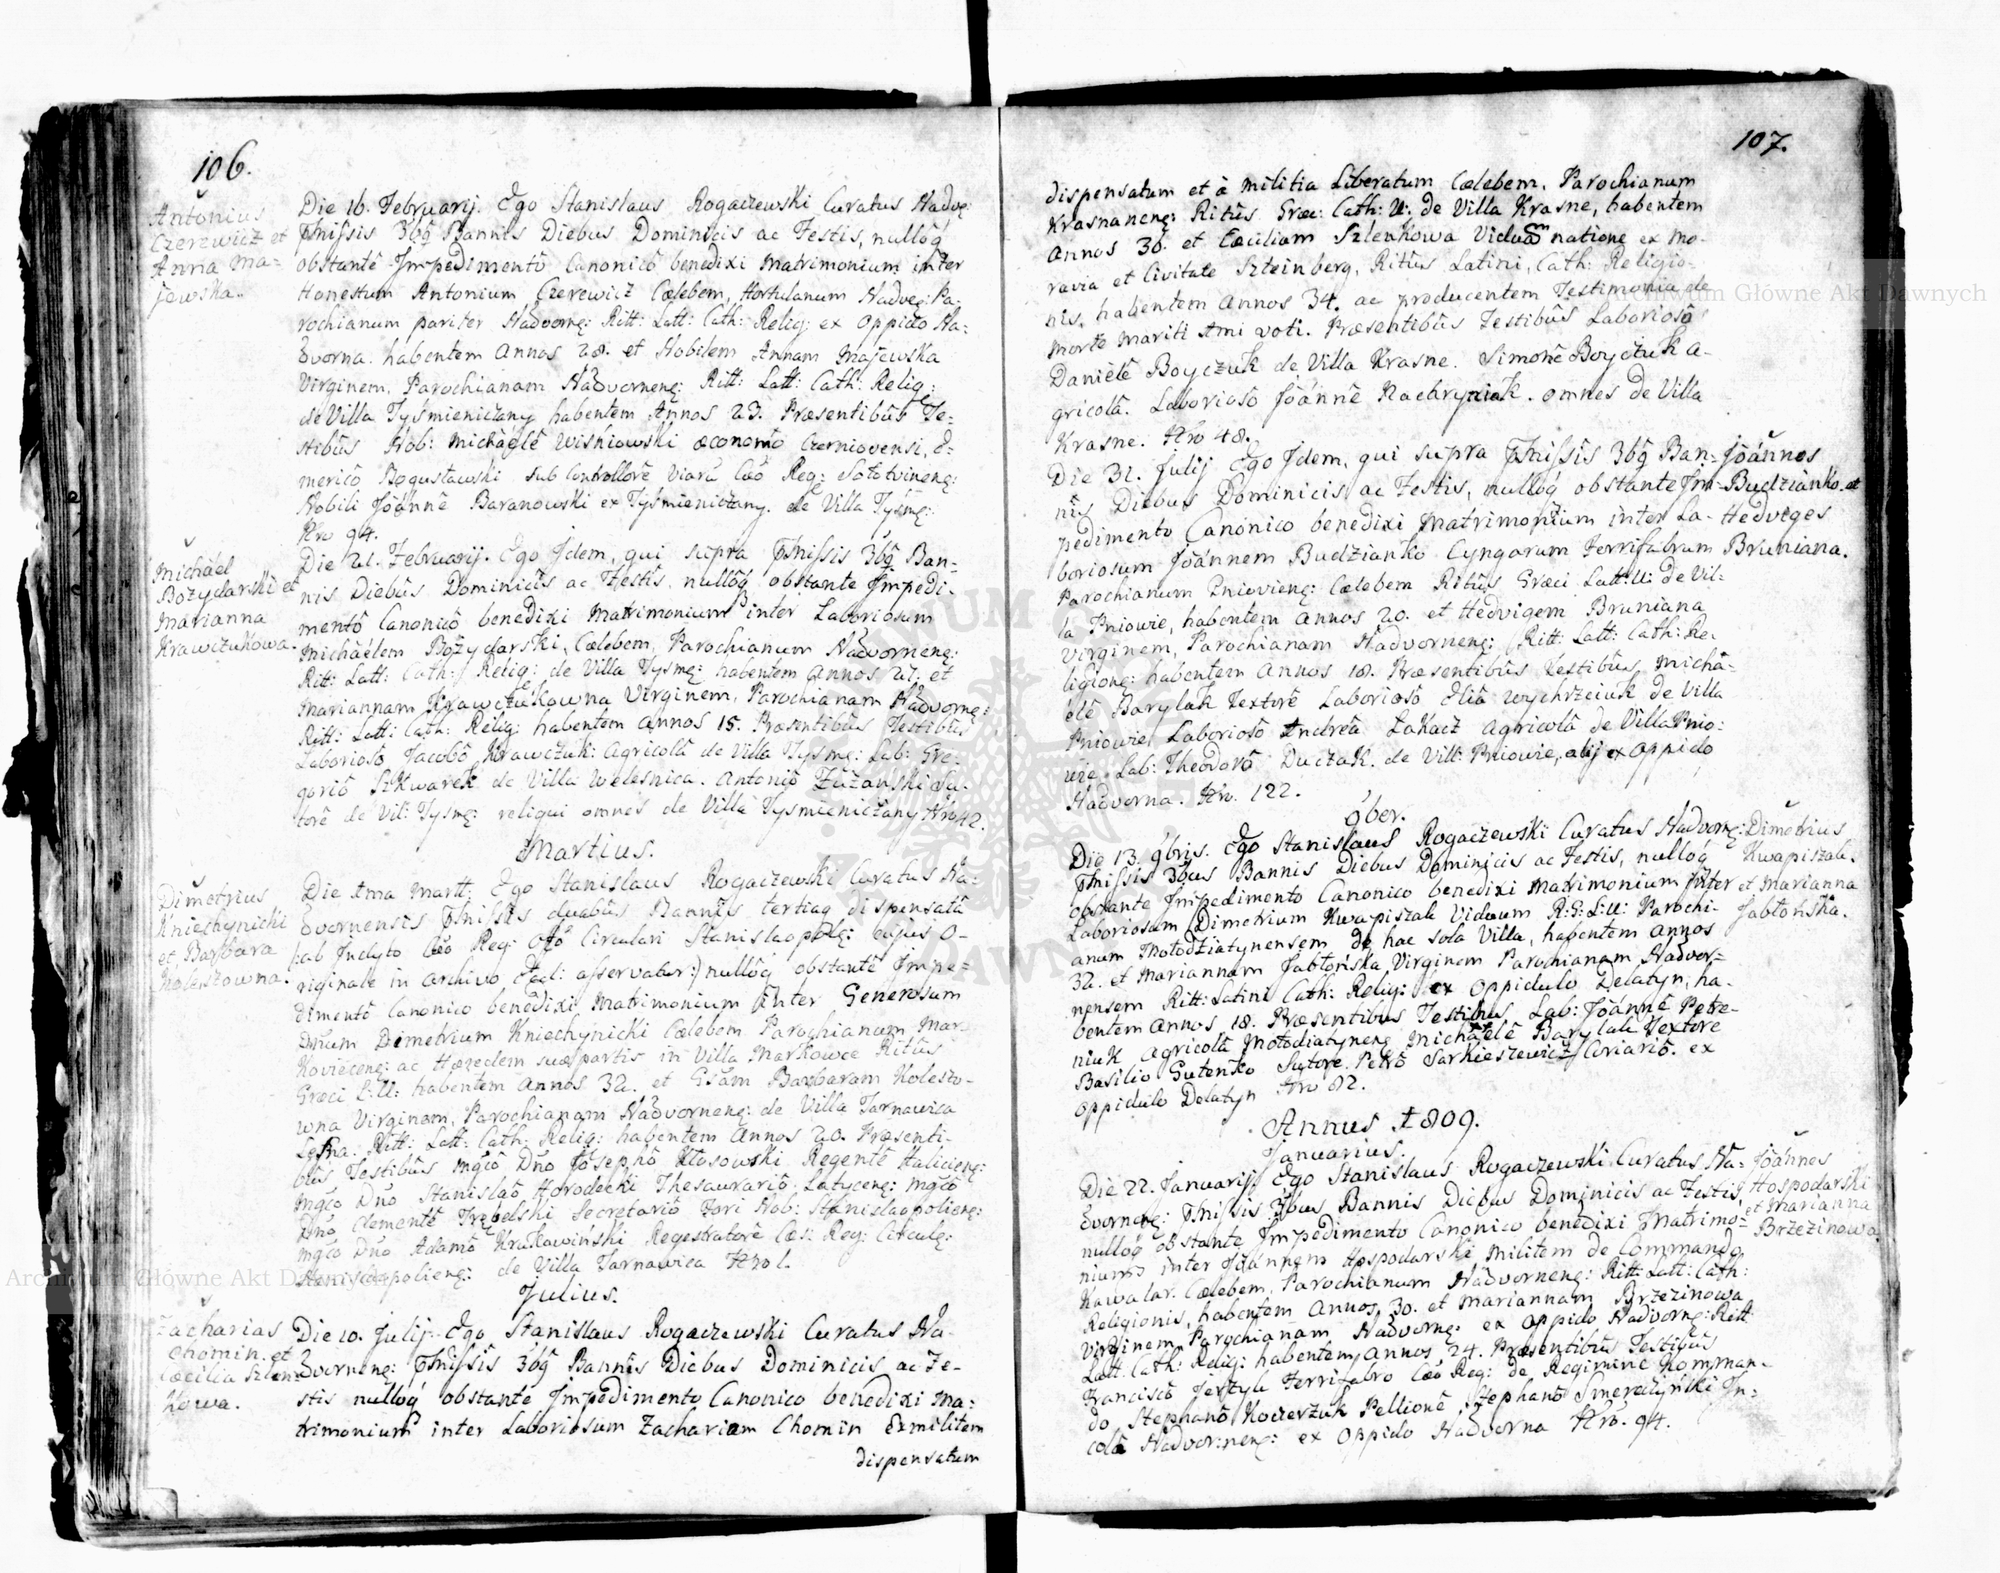 106.
Antonius
Czerewicz et
Anna Ma=
jewska.
Die 16. Februarij. Ego Stanislaus Rogaczewski Curatus Nadvę:
Pmissis 3bg Bannis Diebus Dominicis ac Festis, nullóg
obstantê Impedimentô Canonicô benedixi Matrimonium inter
Honestum Antonium Czerewicz Cælebem, Hortulanum Nadvę: Pa:
rochianum pariter Nadvornę: Ritt: Latt: Cath: Relig: ex Oppido Na:
dvorna. habentem Annos 28. et Nobilem Annam Majewska
Virginem, Parochianam Nadvornenę: Ritt: Latt: Cath: Relig:
de Villa Tysmieniczany habentem Annos 23. Præsentibûs Te=
stibûs Nob: Michaêlê Wiśniowski œconomô Czerniovensi, E=
mericô Bogusławski sub Controllorê Viarũ Cæô Reg: Sołotvinenę:
Nobili Jóánnê Baranowski ex Tysmieniczany. de Villa Tysmę:
Nro 94.
Michaël
Bożydarski et
Marianna
Krawczukowa.
Die 21. Februarij. Ego Idem, qui supra Pmissis 3bg Ban=
nis Diebûs Dominicis ac Festis nullóg obstante Impedi-
mentô Canonicô benedixi Matrimonium inter Laboriosum
Michaêlem Bożydarski, Cælebem, Parochianum Nadvornenę:
Ritt: Latt: Cath: Relig: de Villa Tysmę: habentem Annos 27. et
Mariannam Krawczukowna Virginem, Parochianam Nadvornę:
Ritt: Latt: Cath: Relig: habentem Annos 15. Præsentibûs Testibûs
Laboriosô Jacobô Krawczuk: Agricolâ de Villa Tysmę: Lab: Gre=
goriô Szkwarek de Villa Welesnica. Antoniô Zuzanski Su=
torê de Vil: Tysmę: reliqui omnes de Villa Tysmieniczany Nro 42.
Martius.
Dimetrius
Kniechynicki
et Barbara
Kolestowna.
Die 1ma Martt: Ego Stanislaus Rogaczewski Curatus Na=
dvornensis Pmissis duabûs Bannis tertiaq dispensatâ
/:ab Inclyto Cæô Reg: Offô Circulari Stanislaopolę: cujus O-
riginale in Archivo Eccl: asservatur:/ nullóg obstantê Impe=
dimentô Canonico benedixi Matrimonium inter Generosum
Dnum Dimetrium Kniechynicki Cælebem Parochianum Mar
Kovicenę: ac Hæredem suæ partis in Villa Markowce Ritûs
Græci L:U: habentem Annos 32. et Gsam Barbaram Kolesto-
wna Virginem, Parochianam Nadvornenę: de Villa Tarnawica
Leśna. Ritt: Latt: Cath: Relig: habentem Annos 20. Præsenti-
bûs Testibûs Mgcô Dnô Josephô Kłosowski Regentê Halicienę:
Mgcô Dnô Stanislaô Horodecki Thesaurariô Latycenę: Mgcô
Dnô Clementê Trębelski Secretariô Fori Nob: Stanislaopolienę:
Mgcô Dnô Adamô Krakowiński Regestratorê Cæs: Reg: Circulę:
Stanislaopolienę: de Villa Tarnawica Nro 1.
Julius.
Zacharias
Chomin et
Cæcilia Szlen=
kowa.
Die 10. Julij. Ego Stanislaus Rogaczewski Curatus Na-
dvornenę: Pmissis 3bg Bannis Diebus Dominicis ac Fe-
stis nullóg obstantê Impedimento Canonico benedixi Ma:
trimonium inter Laboriosum Zachariam Chomin Exmilitem
dispensatum
107.
dispensatum et à Militia Liberatum Cælebem. Parochianum
Krasnanenę: Ritûs Græc: Cath: U: de Villa Krasne, habentem
Annos 36. et Cæciliam Szlenkowa Viduam natione ex Mo-
ravia et Civitate Szteinberg, Ritûs Latini, Cath: Religio-
nis, habentem Annos 34. ac producentem Testimonia de
Morte Mariti 1mi voti. Præsentibûs Testibûs Laboriosô
Danièlê Boyczuk de Villa Krasne. Simonê Boyczuk A-
gricolâ. Laboriosô Jóánnê Kachryniak. omnes de Villa
Krasne. Nro 48.
Die 31. Julij Ego Idem, qui supra Pmissis 3bg Ban=
nis Diebus Dominicis ac Festis, nullóg obstante Im-
pedimento Canonico benedixi Matrimonium inter La-
boriosum Jóánnem Budzianko Cyngarum Ferrifabrum
Parochianum Pnievienę: Cælebem Ritûs Græci Latt:U: de Vil:
la Pniowie, habentem Annos 20. et Hedvigem Bruniana
Virginem, Parochianam Nadvornenę: Ritt: Latt: Cath: Re-
ligionę: habentem Annos 18. Præsentibûs Testibûs Michâ=
êlê Barylak Textorê Laboriosô Eliâ Wychrzciuk de Villa
Pniowie Laboriosô Andreâ Łakacz Agricolâ de Villa Pnio:
wie. Lab: Theodorô Duczak. de Vill: Pniowie, alij ex Oppido
Nadvorna. Nro. 122.
Jóánnes
Budzianko. et
Hedviges
Bruniana.
9ber.
Die 13. 9bris. Ego Stanislaus Rogaczewski Curatus Nadvornę:
Pmissis 3bus Bannis Diebus Dominicis ac Festis, nullóg
obstante Impedimento Canonico benedixi Matrimonium inter
Laboriosum Dimetrium Kwapiszak Viduum R:G:L:U: Parochi-
anum Mołodziatynensem de hac sola Villa, habentem Annos
32. et Mariannam Jabłońska Virginem Parochianam Nadvor=
nensem Ritt: Latini Cath: Relig: ex Oppidulo Delatyn, ha-
bentem Annos 18. Præsentibus Testibus, Lab: Jóánnê Petre-
niuk Agricolâ Mołodiatynenę Michaêlê Barylak Textore
Basilio Gutenko Sutore. Petrô Sarkieszewicz Coriariô. ex
Oppidulo Delatyn Nro 82.
Dimetrius
Kwapiszak.
et Marianna
Jabłońska.
Annus 1809.
Januarius.
Die 22. Januarij Ego Stanislaus Rogaczewski Curatus Na=
dvornenę: Pmissis 3bus Bannis Diebus Dominicis ac Festis,
nullóg obstante Impedimento Canonico benedixi Matrimo=
nium inter Jóánnem Hospodarski Militem de Commando
Kawaler. Cælebem, Parochianum Nadvornenę: Ritt: Latt: Cath:
Religionis, habentem Annos 30. et Mariannam Brzezinowa
Virginem Parochianam Nadvornę: ex Oppido Nadvornę: Ritt:
Latt: Cath: Relig: habentem Annos 24. Præsentibûs Testibûs
Franciscô Jerzyk Ferrifabro Cæô Reg: de Regimine Komman-
do, Stephanô Kocierzuk Pellionê, Stephanô Smereczyński In=
colâ Nadvornenę: ex Oppido Nadvorna Nro. 94.
Jóánnes
Hospodarski
et Marianna
Brzezinowa
Archiwum Główne Akt Dawnych
Archiwum Główne Akt Dawnych